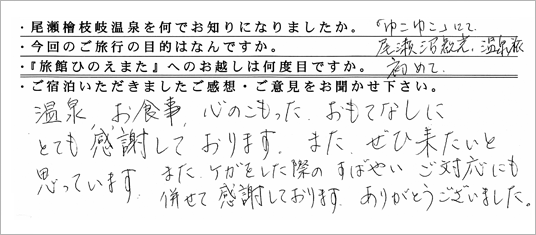 ・尾瀬檜枝岐温泉を何でお知りになりましたか。「ゆこゆこ」にて
・今回のご旅行の目的はなんですか。尾瀬沼観光、温泉旅
・『旅館ひのえまた』へのお越しは何度目ですか。初めて
・ご宿泊いただきましたご感想・ご意見をお聞かせ下さい。
温泉、お食事、心のこもった、おもてなしに
とても感謝しております。また、ぜひ来たいと
思っています。また、ケガをした際の すばやい ご対応にも
併せて感謝しております。ありがとうございました。